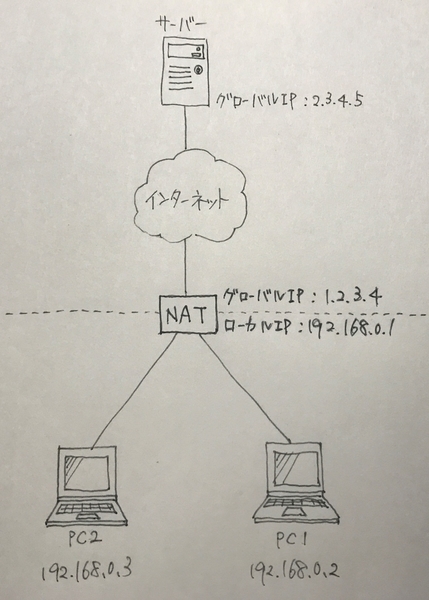 サーバー
グローバルIP:2.3.4.5
インターネット
グローバルIP:1.2.3.4
NAT
ローカルIP:192.168.0.1
PC2
PC1
192.168.0.3
192.168.0.2